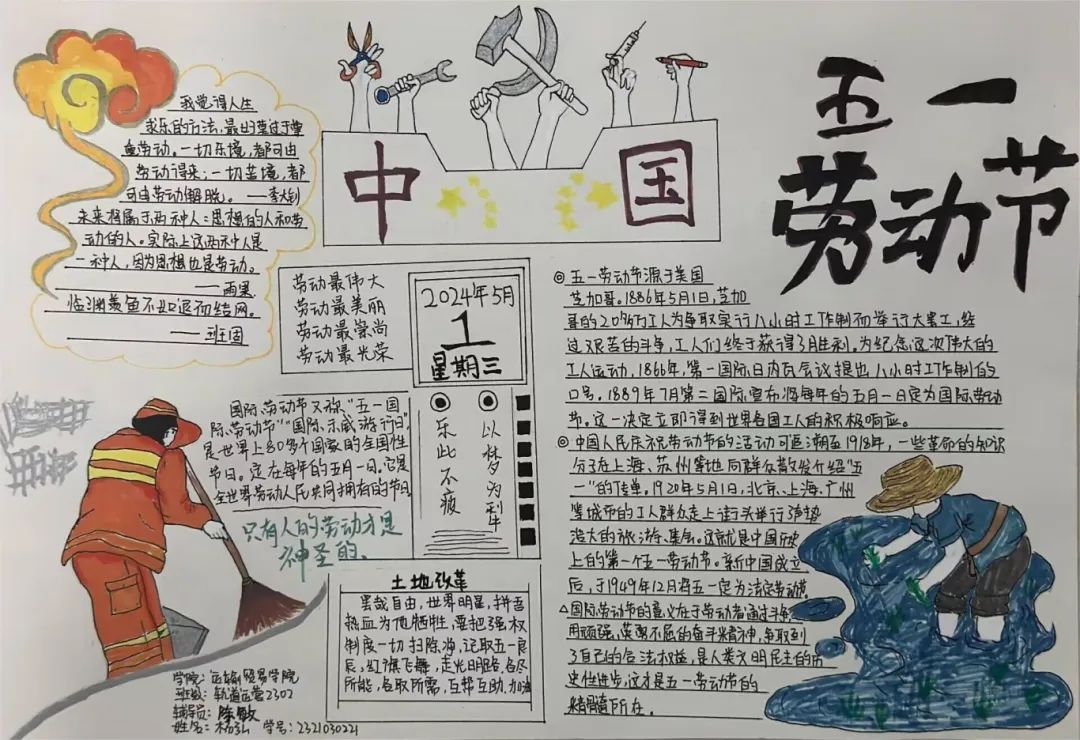 五一
劳动节
中国
我觉得人生
求乐的方法,最好莫过于尊
重劳动。一切乐境,都可由
劳动得来;一切苦境,都
可由劳动解脱。——李大钊
未来将属于两种人:思想的人和劳
动的人。实际上这两种人是
一种人,因为思想也是劳动。
——雨果
临渊羡鱼不如退而结网。
——班固
劳动最伟大
劳动最美丽
劳动最崇尚
劳动最光荣
2024年5月
1
星期三
乐此不疲
以梦为犁
国际劳动节又称“五一国
际劳动节”“国际示威游行日”
是世界上80多个国家的全国性
节日。定在每年的五月一日。它是
全世界劳动人民共同拥有的节日
只有人的劳动才是
神圣的。
土地改革
美哉自由,世界明星,拼吾
热血为他牺牲,要把强权
制度一切扫除净,记取五一良
辰,红旗飞舞,走光明路,各尽
所能,各取所需,互帮互助,加油
◎五一劳动节源于美国
芝加哥。1886年5月1日,芝加
哥的20多万工人为争取实行八小时工作制而举行大罢工,经
过艰苦的斗争,工人们终于获得了胜利。为纪念这次伟大的
工人运动,1866年,第一国际日内瓦会议提出八小时工作制的
口号。1889年7月第二国际宣布将每年的五月一日定为国际劳动
节。这一决定立即得到世界各国工人的积极响应。
◎中国人民庆祝劳动节的活动可追溯至1918年,一些革命的知识
分子在上海、苏州等地向群众散发介绍“五
一”的传单。1920年5月1日,北京、上海、广州
等城市的工人群众走上街头举行了声势
浩大的游行、集会。这就是中国历史
上的第一个五一劳动节。新中国成立
后,于1949年12月将五一定为法定劳动节
△国际劳动节的意义在于劳动者通过斗争,
用顽强、英勇不屈的奋斗精神,争取到
了自己的合法权益,是人类文明民主的历
史性进步,这才是五一劳动节的
精髓所在。
学院:运输贸易学院
班级:轨道运营2302
辅导员:陈敏
姓名:杨弘 学号:2321030221